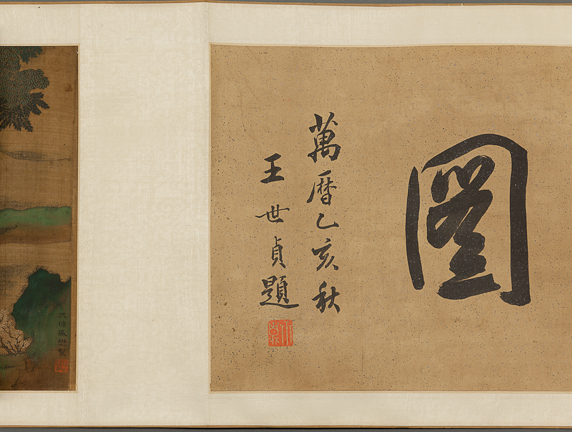 圖
萬曆乙亥秋
王世貞題